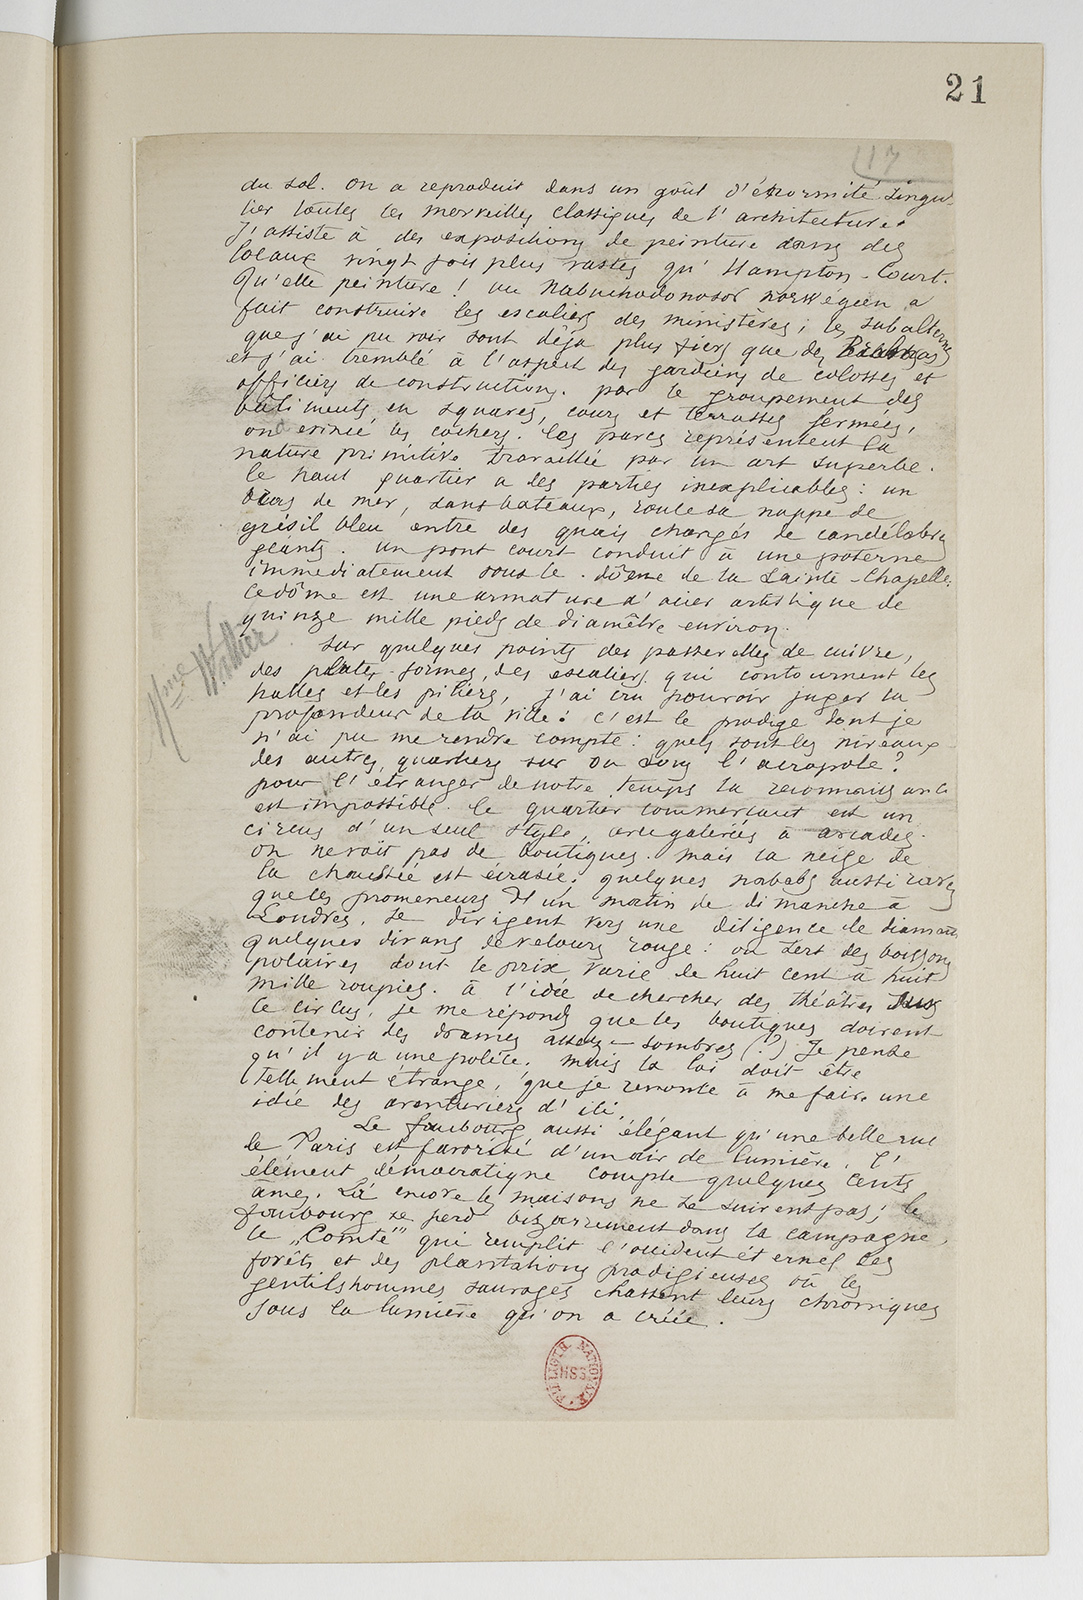 21
(17
du sol. On a reproduit dans un goût d'énormité singu-
lier toutes les merveilles classiques de l'architecture.
J'assiste à des expositions de peinture dans des
locaux vingt fois plus vastes qu'Hampton-Court.
Qu'elle peinture ! un Nabuchodonosor norwégien a
fait construire les escaliers des ministères ; les subalternes
que j'ai pu voir sont déjà plus fiers que des
et j'ai tremblé à l'aspect des gardiens de colosses et
officiers de constructions. par le groupement des
bâtiments, en squares, cours et terrasses fermées,
on évincé les cochers. les parcs représentent la
nature primitive travaillée par un art superbe.
le haut quartier a des parties inexplicables : un
bras de mer, sans bateaux, roule sa nappe de
grésil bleu entre des quais chargés de candélabres
géants. un pont court conduit à une poterne
immédiatement sous le dôme de la Sainte-Chapelle.
Ce dôme est une armature d'acier artistique de
quinze mille pieds de diamètre environ.
Sur quelques points des passerelles de cuivre,
des plates-formes, des escaliers qui contournent les
halles et les piliers, j'ai cru pouvoir juger la
profondeur de la ville : c'est le prodige dont je
n'ai pu me rendre compte : quels sont les niveaux
des autres quartiers sur ou sous l'acropole ?
pour l'étranger de notre temps la reconnaissance
est impossible. le quartier commerçant est un
circus d'un seul style, avec galeries à arcades.
on ne voit pas de boutiques. mais la neige de
la chaussée est écrasée ; quelques nababs aussi rares
que les promeneurs d'un matin de dimanche à
Londres, se dirigent vers une diligence de diamants
quelques divans de velours rouge : on sert des boissons
polaires dont le prix varie de huit cent à huit
mille roupies. à l'idée de chercher des théâtres sur
ce circus, je me réponds que les boutiques doivent
contenir des drames assez sombres (?) Je pense
qu'il y a une police, mais la loi doit être
tellement étrange, que je renonce à me faire une
idée des aventuriers d'ici.
Le faubourg aussi élégant qu'une belle rue
de Paris est favorisé d'un air de lumière. l'
élément démocratique compte quelques cents
âmes. Là encore les maisons ne se suivent pas ; le
faubourg se perd bizarrement dans la campagne,
le „Comté" qui remplit l'occident éternel des
forêts et des plantations prodigieuses où les
gentilshommes sauvages chassent leurs chroniques
sous la lumière qu'on a créée.
Mme
BIBLIOTH. NATIONALE
MSS